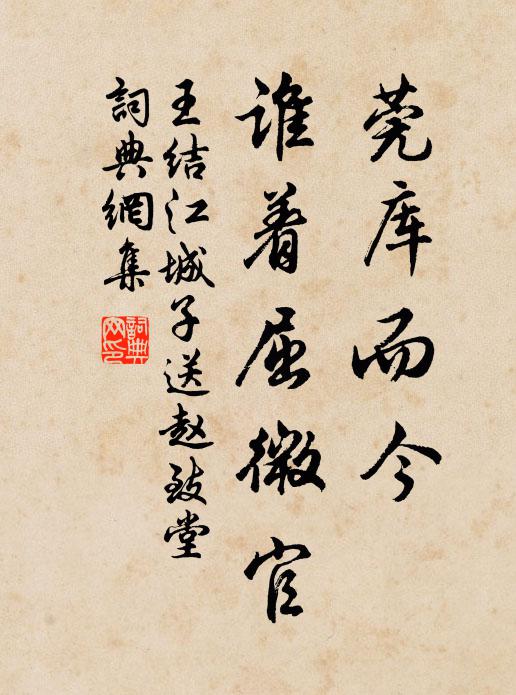 莞库而今
谁着屈微官
王结江城子送赵致堂
詞典網集
詞典
网印